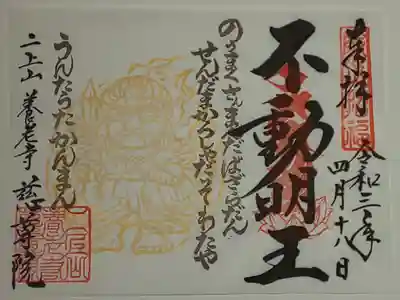 奉拝
令和三年
四月十八日
不動明王
のうまくさまんだばざらだん
せんだまかろしゃだそわたや
うんたらたかんまん
二上山 養老寺 慈尊院